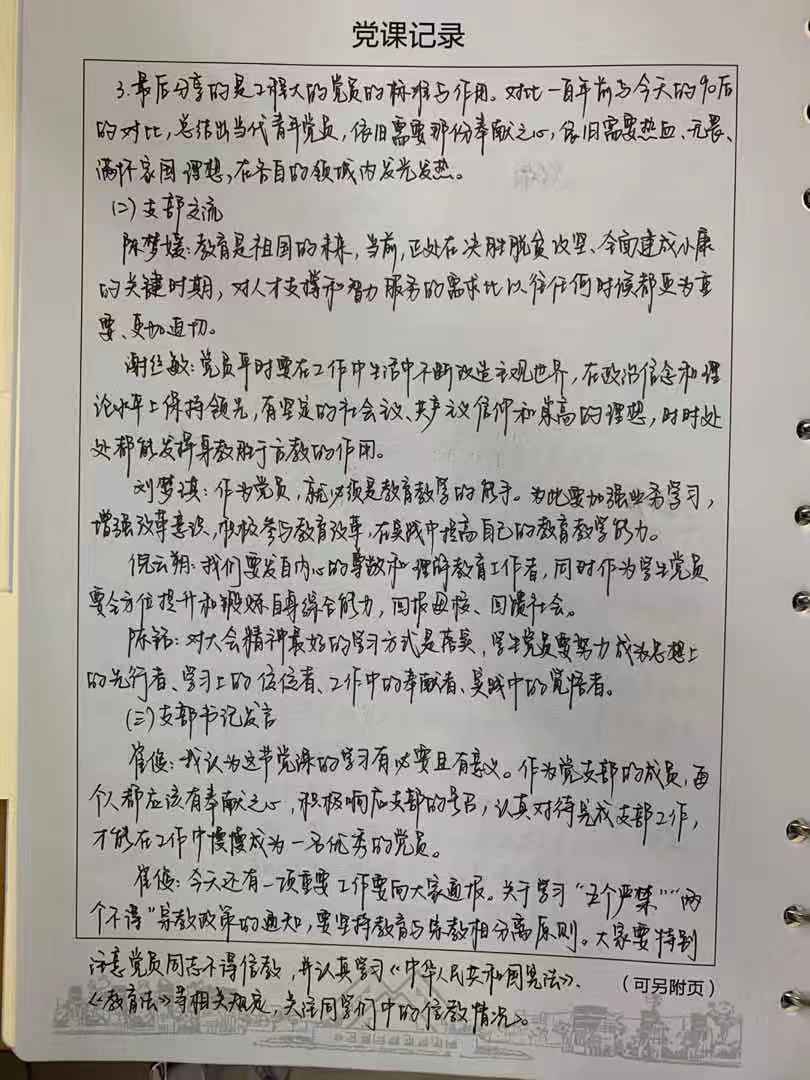 党课记录
3.最后分享的是工程大的党员的标准与作用。对比一百年前与今天的90后
的对比，总结出当代青年党员，依旧需要那份奉献之心，依旧需要热血、无畏、
满怀家国理想，在各自的领域内发光发热。
(二)支部交流
陈梦媛：教育是祖国的未来，当前，正处在决胜脱贫攻坚、全面建成小康
的关键时期，对人才支撑和智力服务的需求比以往任何时候都更为重
要、更加迫切。
谢丝敏：党员平时要在工作中生活中不断改造主观世界，在政治信念和理
论水平上保持领先，有坚定的社会议、共产议信仰和崇高的理想，时时处
处都能发挥身教胜于言教的作用。
刘梦琪：作为党员，就必须是教育教学的能手。为此要加强业务学习，
增强改革意识，积极参与教育改革，在实践中提高自己的教育教学能力。
倪云翔：我们要发自内心的尊敬和理解教育工作者，同时作为学生党员
要全方位提升和锻炼自身综合能力，回报母校、回馈社会。
陈铭：对大会精神最好的学习方式是落实，学生党员要努力成为思想上
的先行者、学习上的佼佼者、工作中的奉献者、实践中的觉悟者。
(三)支部书记发言
崔俊：我认为这节党课的学习有必要且有意义。作为党支部的成员，每
个人都应该有奉献之心，积极响应支部的号召，认真对待完成支部工作，
才能在工作中慢慢成为一名优秀的党员。
崔俊：今天还有一项重要工作要向大家通报。关于学习“五个严禁”“两
个不得”宗教政策的通知，要坚持教育与宗教相分离原则。大家要特别
注意党员同志不得信教，并认真学习《中华人民共和国宪法》、
(可另附页)
《教育法》等相关规定，关注同学们中的信教情况。